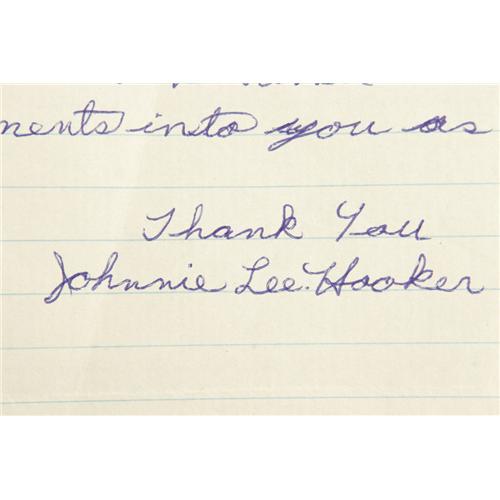 ments into you as
Thank You
Johnnie Lee. Hooker